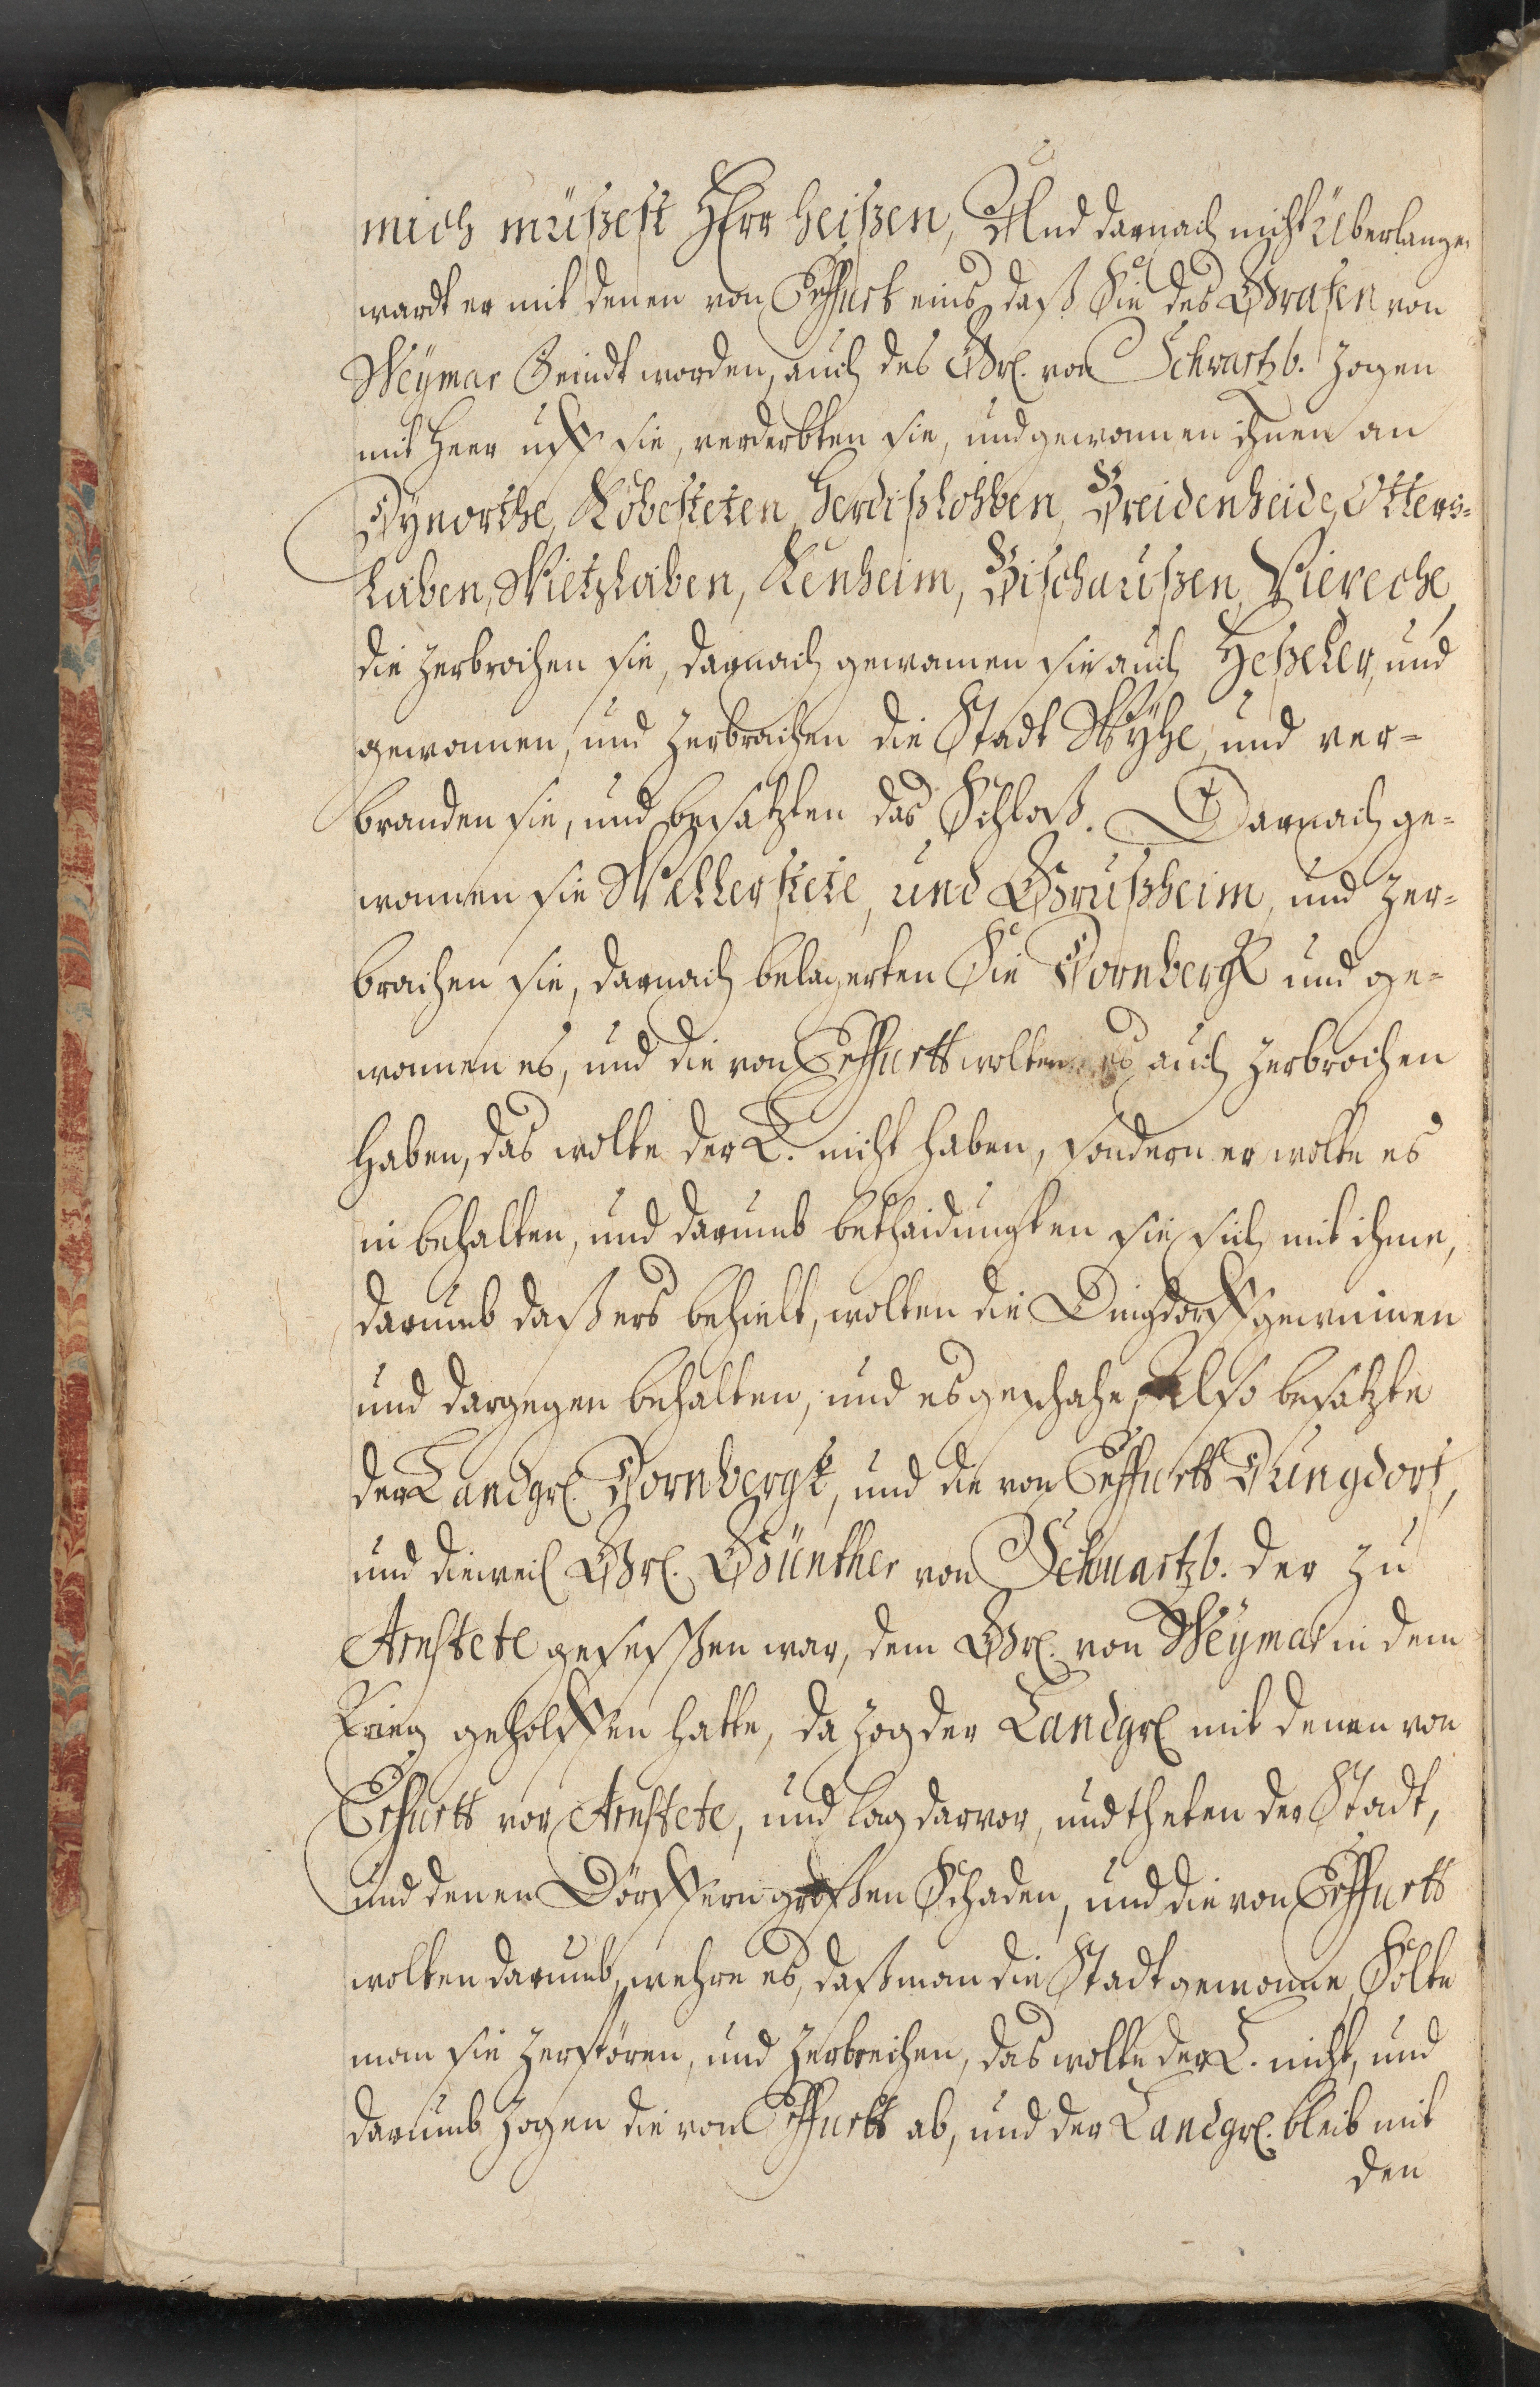 mich müßest Herr heißen, Und darnach nicht Überlange,
wardt er mit denen von Erffurt eins, daß Sie des Grafen von
Weymar Feindt worden, auch des Gr[l]. von Schwartzb. Zogen
mit Heer uff sie, verderbten sie, und gewonnen ihnen an
Dynorthe, Kobesteten, Herdißlohben, Breidenheide, Otters=
laben, Wietzlaben, Kenheim, Bischaußen, Viereche,
die zerbrochen sie, darnach gewannen sie auch Heßeler, und
gewonnen, und zerbrachen die Stadt Wyhe, und ver=
branden sie, und besatzten das Schloß. Darnach ge=
wonnen sie Wellerstete, und Grußheim, und zer=
brachen sie, darnach belagerten Sie Dornbergk und ge=
wonnen es, und die von Erffurtt wolten es auch zerbrochen
haben, das wolte der L. nicht haben, sondern er wolte es
in behalten, und darumb bethaidungten sie sich mit ihme,
darumb daß ers behielt, wolten die Dingdorff gewinnen
und dargegen behalten, und es geschahe, Also besatzte
der Landgr. Dornbergk, und die von Erffurtt Dungdorf,
und dieweil Gr. Günther von Schwartzb. der zu
Arnstete geseßen war, dem Gr. von Weymar in dem
Krieg geholffen hatte, da zog der Landgr mit denen von
Erfurtt vor Arnstete, und lag darvor, und theten der Stadt,
und denen Dörffern großen Schaden, und die von Erffurtt
wolten darumb, wehre es, daß man die Stadt gewonne, Solte
man sie zerstören, und zerbrechen, das wolte der L. nicht, und
darumb zogen die von Erffurtt ab, und der Landgr. bleib mit
den